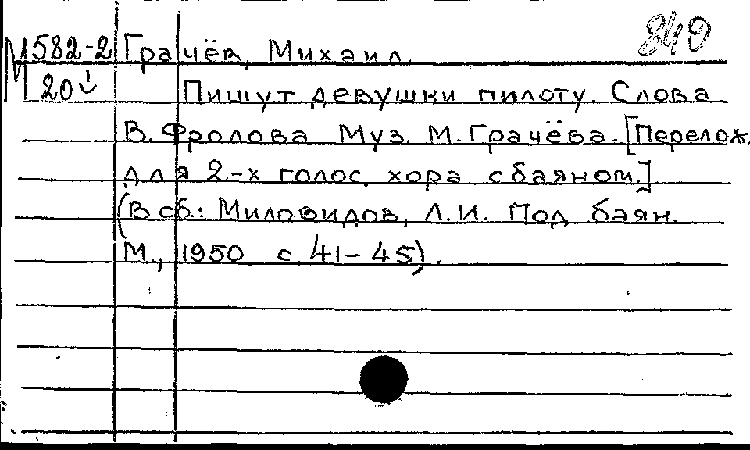 М 582-2 Грачёв, Михаил. 849
20
Пишут девушки пилоту. Слова
В. Фролова Муз. М. Грачёва. [Перелож.
для 2-х голос. хора с баяном.]
(В сб.: Миловидов, Л.И. Под баян.
М., 1950 с 41-45).